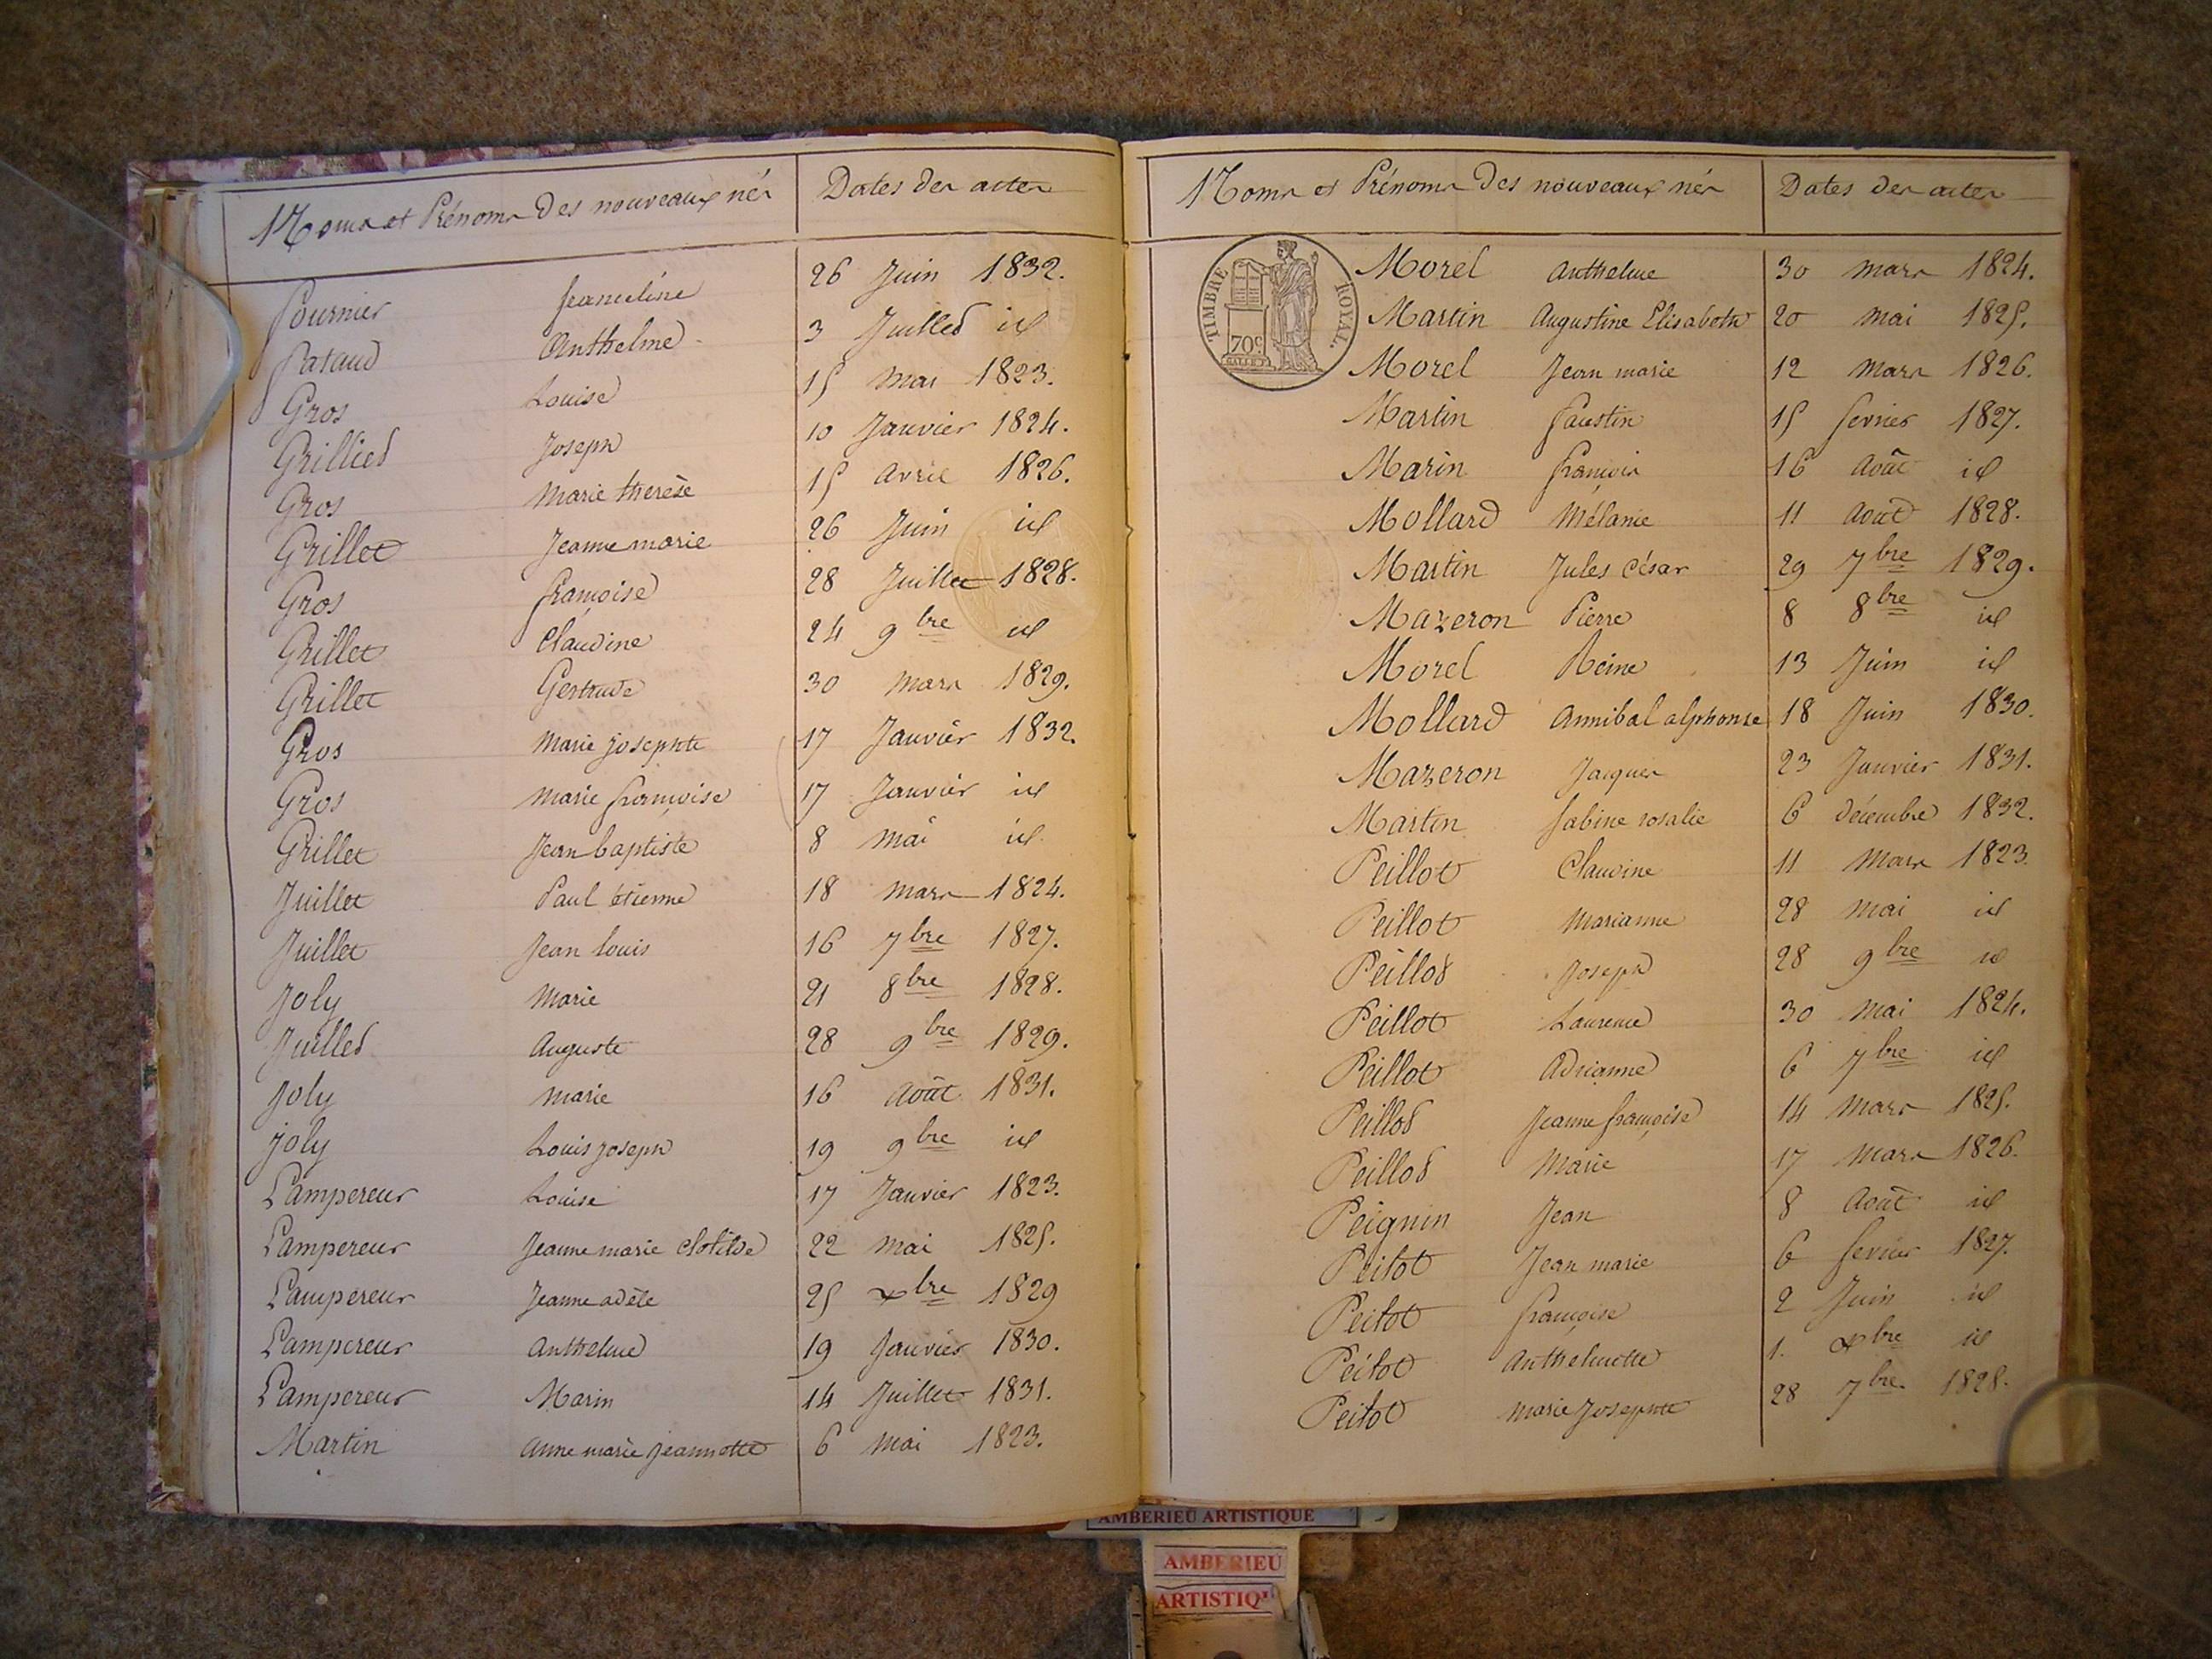 Noms et Prénoms des nouveaux nés Dates des actes
Fournier Francéline 26 Juin 1832.
Pataud Anthelme 3 Juillet id
Gros Louise 15 Mai 1823.
Grillet Joseph 10 Janvier 1824.
Gros Marie therèse 15 Avril 1826.
Grillet Jeanne marie 26 Juin id
Gros françoise 28 Juillet 1828.
Grillet Claudine 24 9bre id
Grillet Gertrude 30 Mars 1829.
Gros Marie josephte 17 Janvier 1832.
Gros Marie françoise 17 Janvier id
Grillet Jean baptiste 8 Mai id
Juillet Paul étienne 18 Mars 1824.
Juillet Jean louis 16 7bre 1827.
Joly Marie 21 8bre 1828.
Juillet Auguste 28 9bre 1829.
Joly Marie 16 Août 1831.
joly Louis joseph 19 9bre id
Lampereur Louise 17 Janvier 1823.
Lampereur Jeanne marie Clotilde 22 Mai 1825.
Lampereur Jeanne adèle 25 xbre 1829
Lampereur Anthelme 19 Janvier 1830.
Lampereur Marin 14 Juillet 1831.
Martin Anne marie jeannette 6 Mai 1823.
Noms et Prénoms des nouveaux nés Dates des actes
TIMBRE ROYAL.
70c
Morel Anthelme 30 Mars 1824.
Martin Augustine Elisabeth 20 Mai 1825.
Morel Jean marie 12 Mars 1826.
Martin faustin 15 fevrier 1827.
Marin françois 16 Août id
Mollard Mélanie 11 Août 1828.
Martin Jules César 29 7bre 1829.
Mazeron Pierre 8 8bre id
Morel Reine 13 Juin id
Mollard Annibal alphonse 18 Juin 1830.
Mazeron Jacques 23 Janvier 1831.
Martin Sabine rosalie 6 décembre 1832.
Peillot Claudine 11 Mars 1823.
Peillot Marianne 28 Mai id
Peillot Joseph 28 9bre id
Peillot Laurence 30 Mai 1824.
Peillot Adrianne 6 7bre id
Peillot Jeanne françoise 14 Mars 1825.
Peillot Marie 17 Mars 1826.
Peignin Jean 8 Août id
Peitot Jean marie 6 fevrier 1827.
Peitot françoise 2 Juin id
Peitot Anthelmette 1. xbre id
Peitot Marie Josephte 28 7bre 1828.
AMBERIEU ARTISTIQUE
AMBERIEU
ARTISTIQU